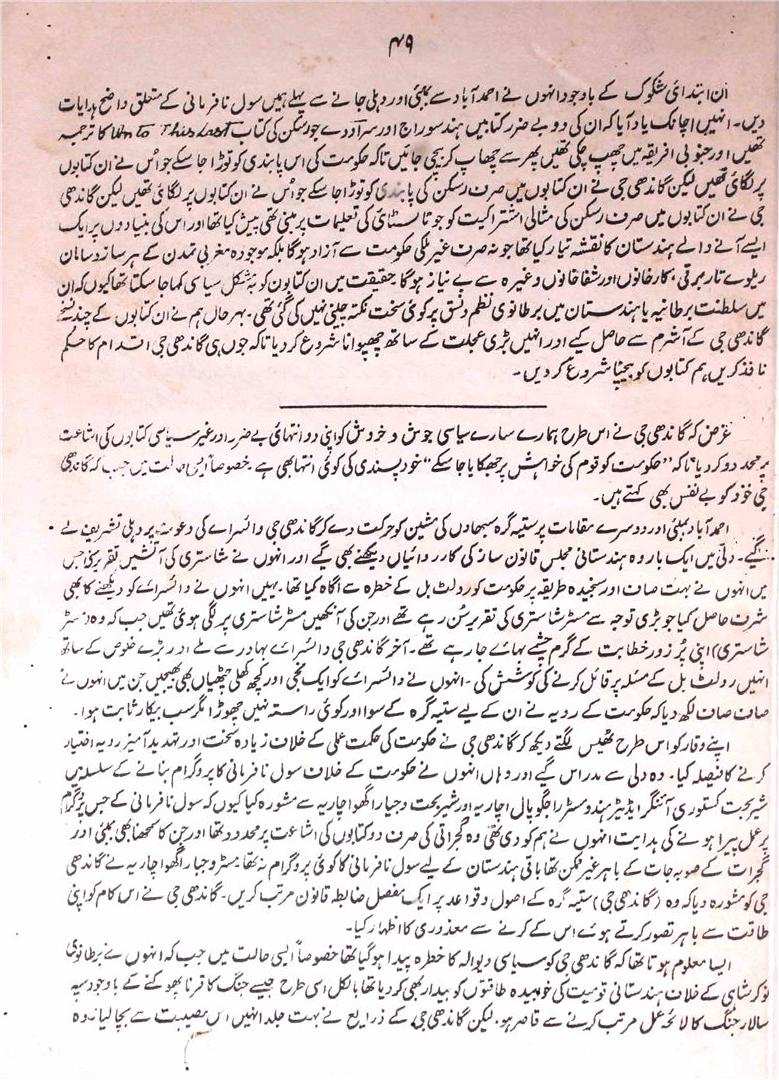 ۴۹
ان ابتدائی شکوک کے باوجود انہوں نے احمد آباد سے بمبئی اور دہلی جانے سے پہلے ہمیں سول نافرمانی کے متعلق واضح ہدایات
دیں۔ انہیں اچانک یاد آیا کہ ان کی دو بے ضرر کتابیں ہند سوراج اور سروادے جو رسکن کی کتاب Un to This Last کا ترجمہ
تھیں اور جنوبی افریقہ میں چھپ چکی تھیں پھر سے چھاپ کر بیچی جائیں تاکہ حکومت کی اس پابندی کو توڑا جا سکے جو اس نے ان کتابوں
پر لگائی تھیں لیکن گاندھی جی نے ان کتابوں میں صرف رسکن کی پابندی کو توڑا جا سکے جو اس نے ان کتابوں پر لگائی تھیں لیکن گاندھی
جی نے ان کتابوں میں صرف رسکن کی مثالی اشتراکیت کو جو ٹالسٹائی کی تعلیمات پر مبنی تھی پیش کیا تھا اور اس کی بنیادوں پر ایک
ایسے آنے والے ہندستان کا نقشہ تیار کیا تھا جو نہ صرف غیر ملکی حکومت سے آزاد ہوگا بلکہ موجودہ مغربی تمدن کے ہر ساز و سامان
ریلوے تار برقی، کارخانوں اور شفاخانوں وغیرہ سے بے نیاز ہوگا حقیقت میں ان کتابوں کو بہ شکل سیاسی کہا جا سکتا تھا کیوں کہ ان
میں سلطنت برطانیہ یا ہندستان میں برطانوی نظم و نسق پر کوئی سخت نکتہ چینی نہیں کی گئی تھی۔ بہرحال ہم نے ان کتابوں کے چند نسخے
گاندھی جی کے آشرم سے حاصل کیے اور انہیں بڑی عجلت کے ساتھ چھپوانا شروع کر دیا تاکہ جوں ہی گاندھی جی اقدام کا حکم
نافذ کریں ہم کتابوں کو بیچنا شروع کر دیں۔
غرض کہ گاندھی جی نے اس طرح ہمارے سارے سیاسی جوش و خروش کو اپنی دو انتہائی بے ضرر اور غیر سیاسی کتابوں کی اشاعت
پر محدود کر دیا تاکہ "حکومت کو قوم کی خواہش پر جھکایا جا سکے" خود پسندی کی کوئی انتہا بھی ہے خصوصاً ایسی حالت میں جب کہ گاندھی
جی خود کو بے نفس بھی کہتے ہیں۔
احمد آباد بمبئی اور دوسرے مقامات پر ستیہ گرہ سبھاؤں کی مشین کو حرکت دے کر گاندھی جی وائسرائے کی دعوت پر دہلی تشریف لے
گیے۔ دلی میں ایک بار وہ ہندستانی مجلس قانون ساز کی کارروائیاں دیکھنے بھی گیے اور انہوں نے شاستری کی آتشیں تقریر سنی جس
میں انہوں نے بہت صاف اور سنجیدہ طریقہ پر حکومت کو رولٹ بل کے خطرہ سے آگاہ کیا تھا۔ یہیں انہوں نے وائسرائے کو دیکھنے کا بھی
شرف حاصل کیا جو بڑی توجہ سے مسٹر شاستری کی تقریر سن رہے تھے اور جن کی آنکھیں مسٹر شاستری پر لگی ہوئی تھیں جب کہ وہ (مسٹر
شاستری) اپنی پُر زور خطابت کے گرم چشمے بہائے جا رہے تھے۔ آخر گاندھی جی وائسرائے بہادر سے ملے اور بڑے خلوص کے ساتھ
انہیں رولٹ بل کے مسئلہ پر قائل کرنے کی کوشش کی۔ انہوں نے وائسرائے کو ایک نجی اور کچھ کھلی چٹھیاں بھی بھیجیں جن میں انہوں نے
صاف صاف لکھ دیا کہ حکومت کے رویہ نے ان کے لیے ستیہ گرہ کے سوا اور کوئی راستہ نہیں چھوڑا مگر سب بیکار ثابت ہوا۔
اپنے وقار کو اس طرح ٹھیس لگتے دیکھ کر گاندھی جی نے حکومت کی حکمت عملی کے خلاف زیادہ سخت اور تہدید آمیز رویہ اختیار
کرنے کا فیصلہ کیا۔ وہ دلی سے مدراس گیے اور وہاں انہوں نے حکومت کے خلاف سول نافرمانی کا پروگرام بنانے کے سلسلہ میں
شریجت کستوری آئنگر ایڈیٹر ہندو مسٹر راجگوپال اچاریہ اور شریجت وجیا راگھوا چاریہ سے مشورہ کیا کیوں کہ سول نافرمانی کے جس پروگرام
پر عمل پیرا ہونے کی ہدایت انہوں نے ہم کو دی تھی وہ گجراتی کی صرف دو کتابوں کی اشاعت پر محدود تھا اور جن کا سمجھنا بھی بمبئی اور
گجرات کے صوبہ جات کے باہر غیر ممکن تھا باقی ہندستان کے لیے سول نافرمانی کا کوئی پروگرام نہ تھا۔ مسٹر وجیا راگھوا چاریہ نے گاندھی
جی کو مشورہ دیا کہ وہ (گاندھی جی) ستیہ گرہ کے اصول و قواعد پر ایک مفصل ضابطہ قانون مرتب کریں۔ گاندھی جی نے اس کام کو اپنی
طاقت سے باہر تصور کرتے ہوئے اس کے کرنے سے معذوری کا اظہار کیا۔
ایسا معلوم ہوتا تھا کہ گاندھی جی کو سیاسی دیوالہ کا خطرہ پیدا ہو گیا تھا خصوصاً ایسی حالت میں جب کہ انہوں نے برطانوی
نوکر شاہی کے خلاف ہندستانی قومیت کی خوابیدہ طاقتوں کو بیدار بھی کر دیا تھا بالکل اسی طرح جیسے جنگ کا قرنا پھونکنے کے باوجود سپہ
سالار جنگ کا لائحہ عمل مرتب کرنے سے قاصر ہو۔ لیکن گاندھی جی کے ذرایع نے بہت جلد انہیں اس مصیبت سے بچا لیا۔ وہ